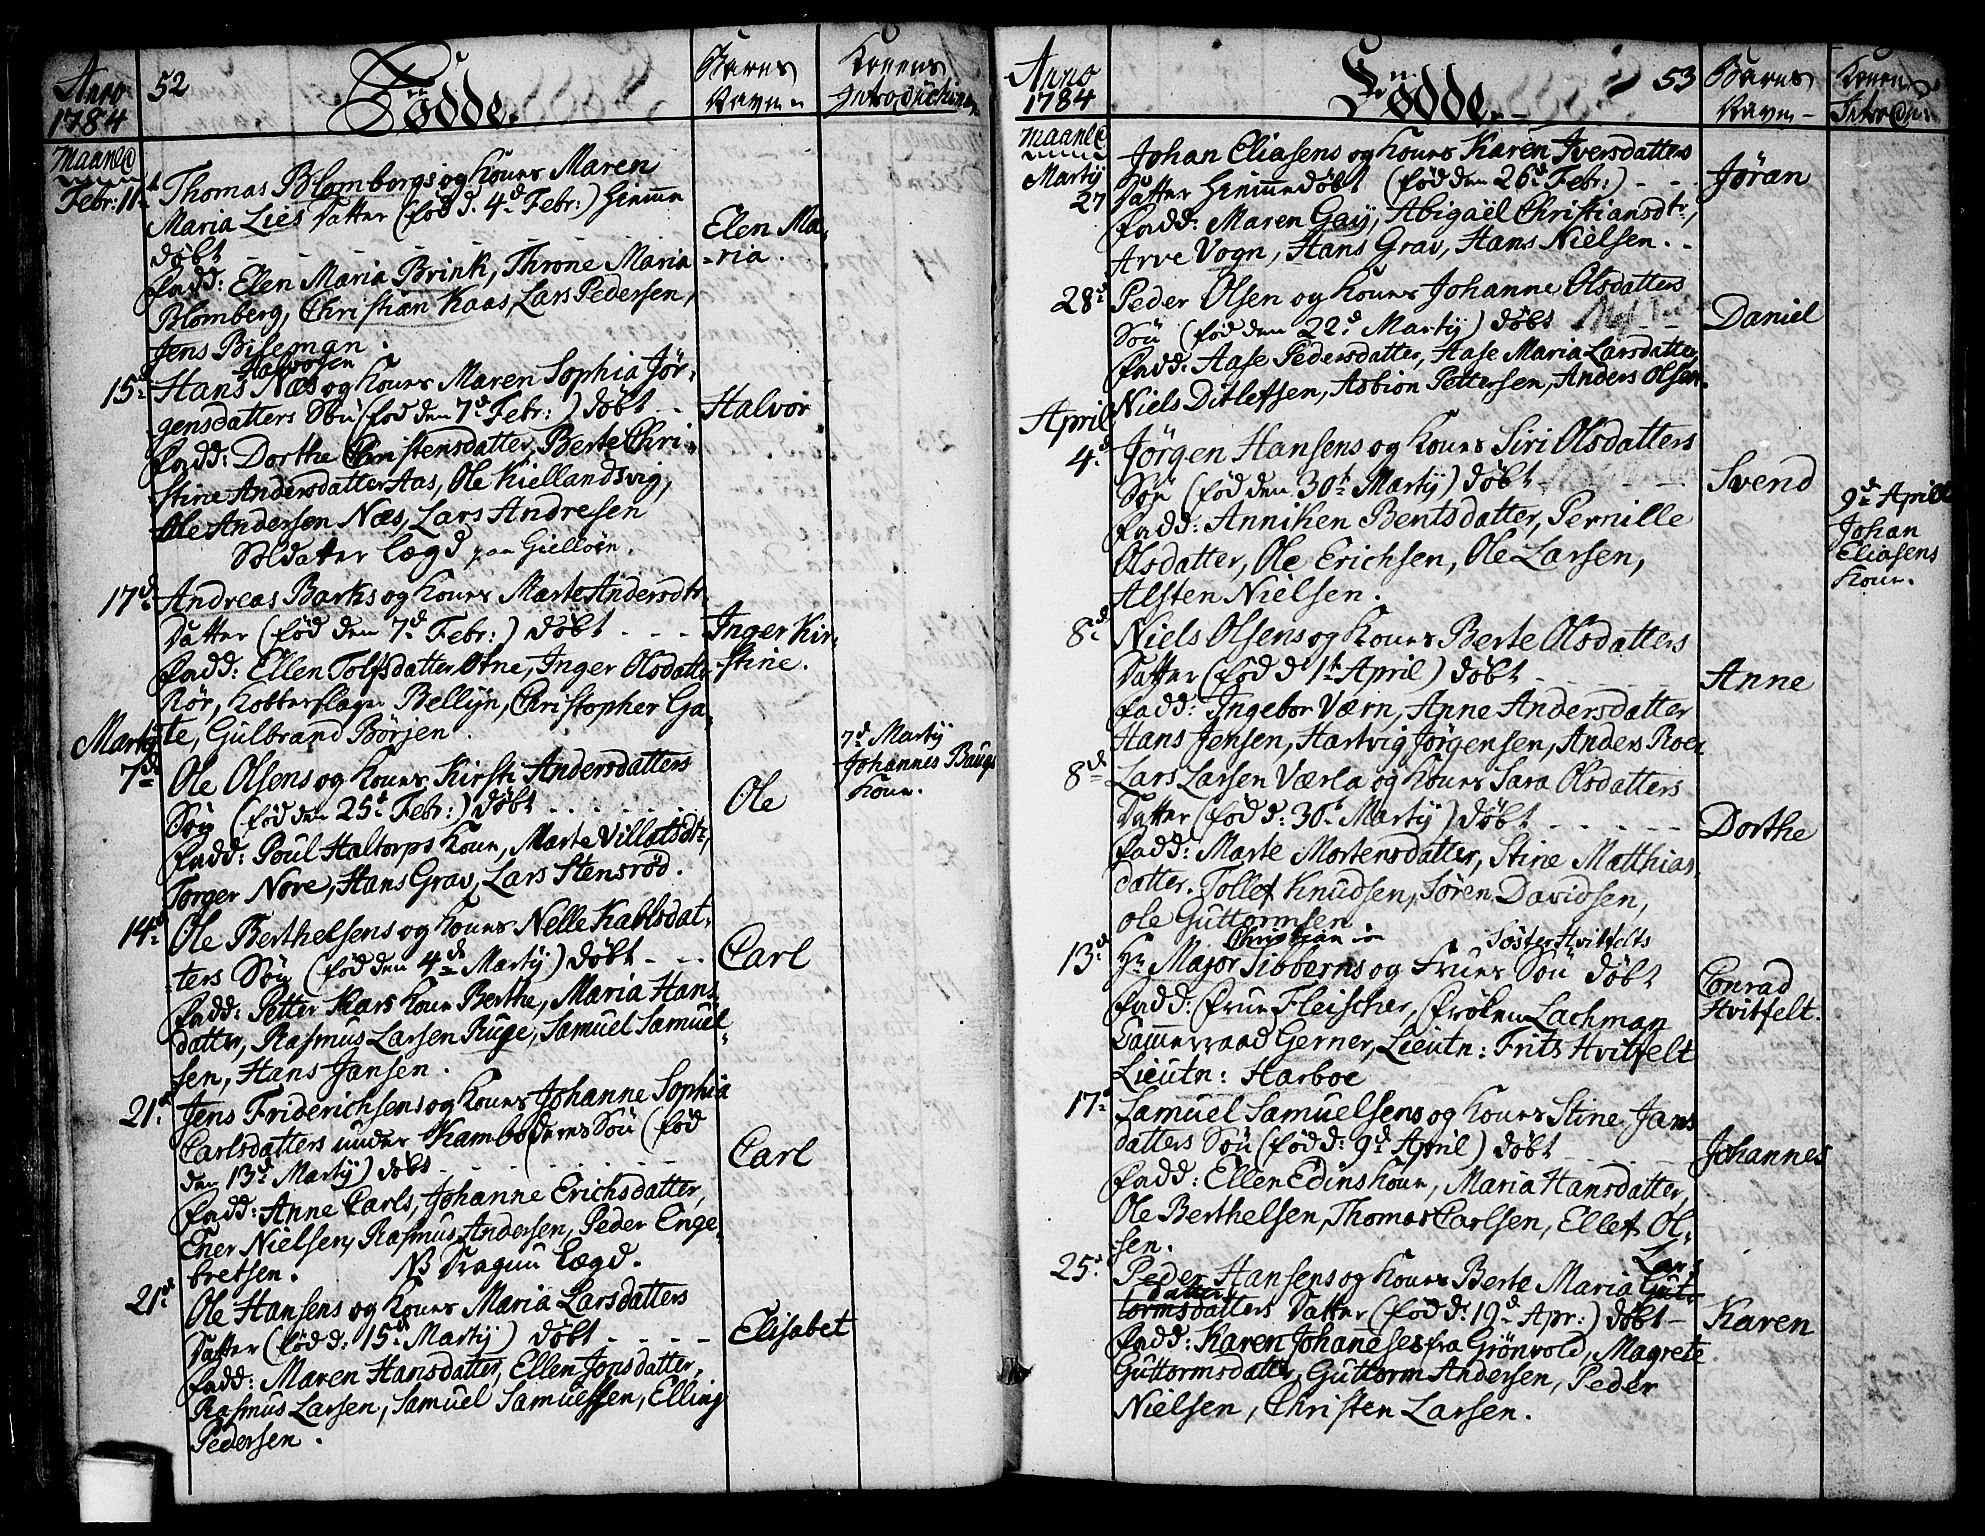 Anno 1784
52
Fødde.
Barnes Navn
Konens Introduchion
Maaned
Febr: 11t
Thomas Blombergs og Kones Maren
Maria Lies Datter (fød d. 4d Febr:) hiemme
døbt
Fadd: Elen Maria Brink, Throne Maria
Blomberg, Christian Kaas, Lars Pedersen,
Jens Biseman.
Elen Ma-
-ria.
15d
Halvorsen
Hans Næs og Kones Maren Sophia Jør-
gensdatters Søn (fød den 7d Febr:) døbt
Fadd: Dorthe Christensdatter, Berte Chri-
stine Andersdatter Aas, Ole Kiellandsvig,
Ole Andersen Næs, Lars Andresen
Soldatter Lægd paa Gielløen.
Halvor
17d
Andreas Barks og Kones Marte Andersdtr
Datter (fød den 7d Febr:) døbt
Fadd: Ellen Tolfsdatter Otne, Inger Olsdatter
Rør, Bellijn, Christopher Ga-
te, Gulbrand Børjen.
Inger Kir-
stine.
Martij
7d
Ole Olsens og Kones Kirsti Andersdatters
Søn (fød den 25t Febr:) døbt
Fadd: Poul Haltorps Kone, Marte Villatsdtr,
Torger Nore, Hans Grav, Lars Stensrød.
Ole
7d Martij
Johannes Baugs
Kone.
14d
Ole Berthelsens og Kones Nelle Kablsdat-
ters Søn (fød den 4de Martij) døbt
Fadd: Petter Kars Kone Berthe, Maria Hans-
datter, Rasmus Larsen Ruge, Samuel Samuel-
sen, Hans Jansen.
Carl
21d
Jens Friderichsens og Kones Johanne Sophia
Carlsdatters under Kambo deres Søn (fød
den 13d Martij) døbt
Fadd: Anne Carls, Johanne Erichsdatter,
Ener Nielsen, Rasmus Andersen, Peder Enge-
bretsen. NB Dragun Lægd.
Carl
21d
Ole Hansens og Kones Maria Larsdatters
Datter (fød d: 15d Martij) døbt
Fadd: Maren Hansdatter, Ellen Jonsdatter,
Rasmus Larsen, Samuel Samuelsen, Elling
Pedersen.
Elisabet
Anno 1784
Fødde.
53
Barnes Navn
Konens Introd:
Maaned
Martij
27
Johan Eliasens og Kones Karen Iversdatters
Datter hiemmedøbt (fød den 26d Febr:)
Fadd: Maren Gaij, Abigaël Christiansdtr,
Arve Vogn, Hans Grav, Hans Nielsen.
Jøran
28d
Peder Olsen og Kones Johanne Olsdatters
Søn (fød den 22d Martij) døbt
Fadd: Aase Pedersdatter, Aase Maria Larsdatter,
Niels Ditlefsen, Asbion Pettersen, Anders Olsen.
Daniel
April
4d
Jørgen Hansens og Kones Siri Olsdatters
Søn (fød den 30t Martij) døbt
Fadd: Anniken Bentsdatter, Pernille
Olsdatter, Ole Erichsen, Ole Larsen,
Alsten Nielsen.
Svend
9d Aprill
Johan
Eliasens
Kone.
8d
Niels Olsens og Kones Berte Olsdatters
Datter (fød d 1t April) døbt
Fadd: Ingebor Værn, Anne Andersdatter
Hans Jensen, Hartvig Jørgensen, Anders Roer
Anne
8d
Lars Larsen Værla og Kones Sara Olsdatters
Datter (fød d: 30t Martij) døbt
Fadd: Marte Mortensdatter, Stine Matthias-
datter. Tollef Knudsen, Søren Davidsen,
Ole Guttormsen
Dorthe
13d
Christian Søster Hvitfelts
Hr Major Sibberns og Frues Søn døbt
Fadd: Frue Fleischer, Frøken Lachman
Cammerraad Gerner, Lieutn: Frits Hvitfelt
Lieutn: Harboe
Conrad
Hvitfelt.
17d
Samuel Samuelsens og Kones Stine Jans
datters Søn (fød d: 9d April) døbt
Fadd: Ellen Edins Kone, Maria Hansdatter,
Ole Berthelsen, Thomas Carlsen, Ellef Ol-
sen.
Johannes
25d
Lars
Peder Hansens og Kones Berte Maria Gut-
datters
tormsdatters Datter (fød d: 19d Apr:) døbt
Fadd: Karen Johaneses fra Grönvold, Magrete
Guttormsdatter, Guttorm Andersen, Peder
Nielsen, Christen Larsen.
Karen